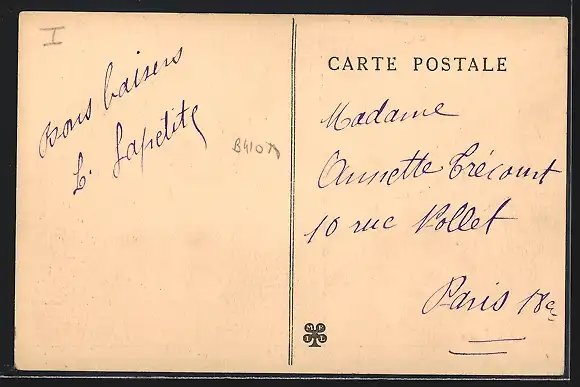 I
Bons baisers
L. Lapetite
B4107
CARTE POSTALE
Madame
Annette Trécourt
10 rue Pollet
Paris 18e